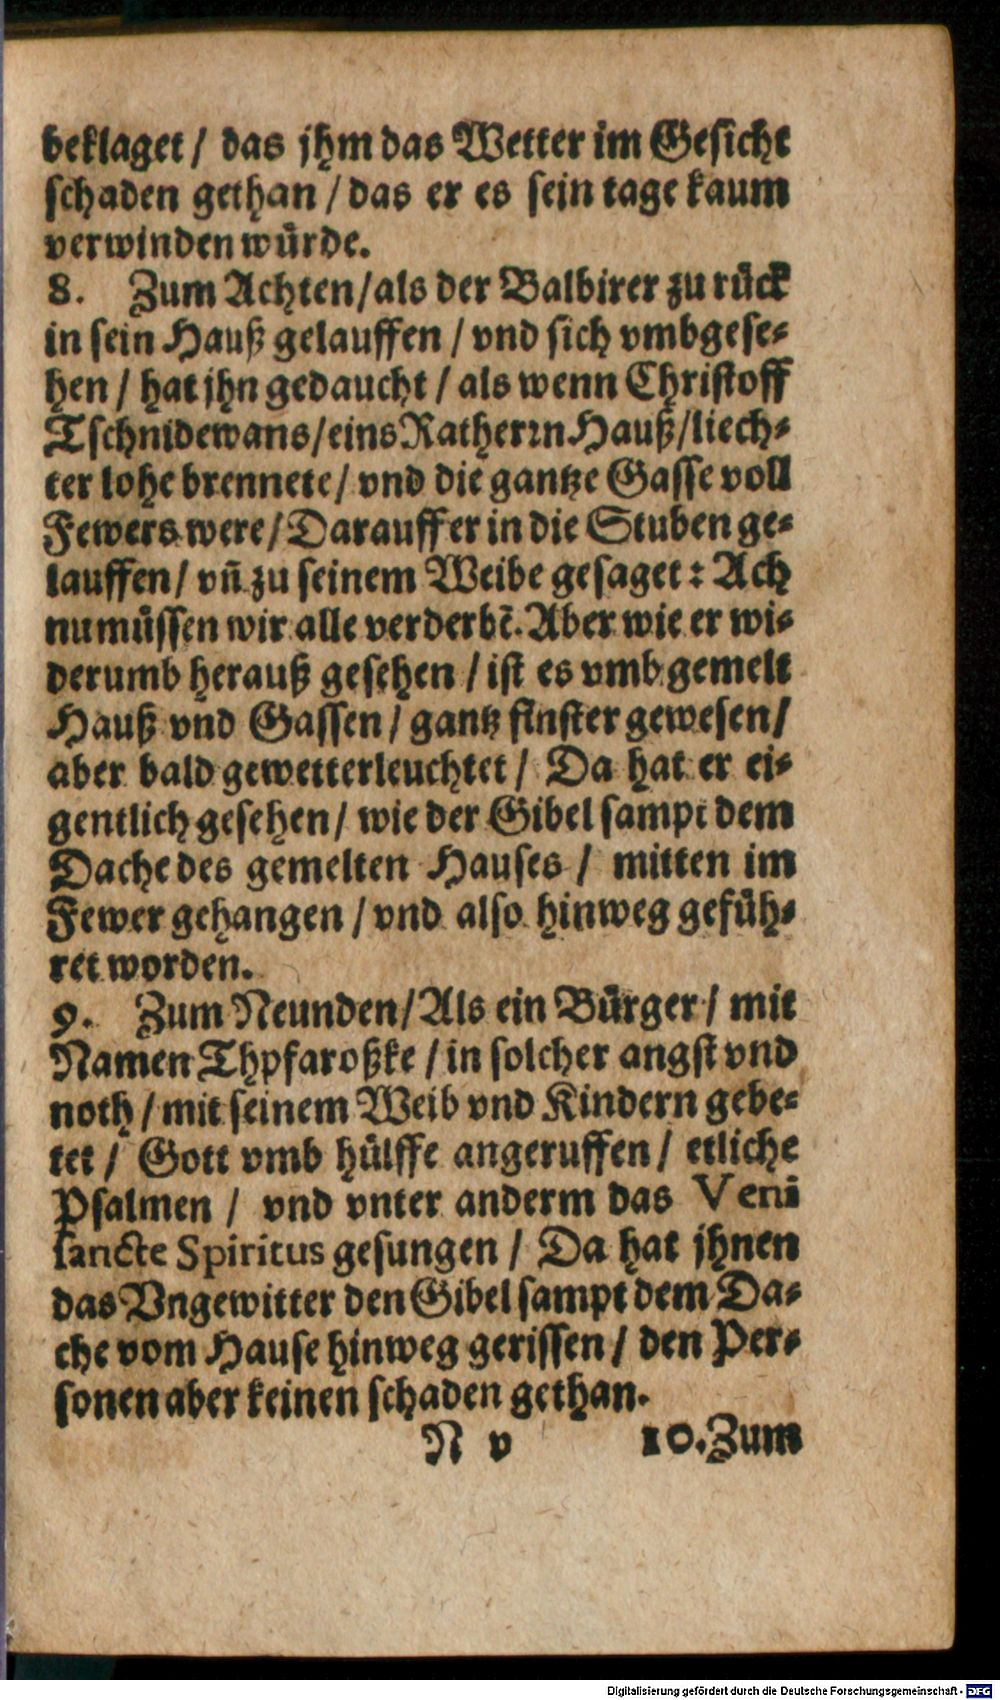 beklaget / das jhm das Wetter im Gesicht
schaden gethan / das er es sein tage kaum
verwinden würde.
8. Zum Achten / als der Balbirer zu rück
in sein Hauß gelauffen / vnd sich vmbgese-
hen / hat jhn gedaucht / als wenn Christoff
Tschnidewans / eins Ratherrn Hauß / liech-
ter lohe brennete / vnd die gantze Gasse voll
Fewers were / Darauff er in die Stuben ge-
lauffen / vñ zu seinem Weibe gesaget: Ach
nu müssen wir alle verderbē. Aber wie er wi-
derumb herauß gesehen / ist es vmb gemelt
Hauß vnd Gassen / gantz finster gewesen /
aber bald gewetterleuchtet / Da hat er ei-
gentlich gesehen / wie der Gibel sampt dem
Dache des gemelten Hauses / mitten im
Fewer gehangen / vnd also hinweg gefüh-
ret worden.
9. Zum Neunden / Als ein Bürger / mit
Namen Thpfaroßke / in solcher angst vnd
noth / mit seinem Weib vnd Kindern gebe-
tet / Gott vmb hülffe angeruffen / etliche
Psalmen / vnd vnter anderm das Veni
sancte Spiritus gesungen / Da hat jhnen
das Vngewitter den Gibel sampt dem Da-
che vom Hause hinweg gerissen / den Per-
sonen aber keinen schaden gethan.
N v 10. Zum
Digitalisierung gefördert durch die Deutsche Forschungsgemeinschaft - DFG